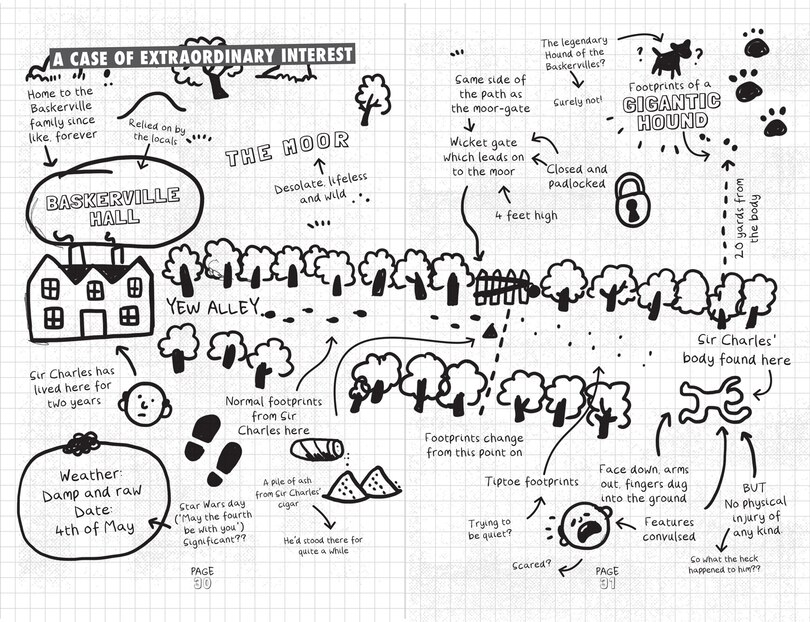 A CASE OF EXTRAORDINARY INTEREST
Home to the
Baskerville
family since
like, forever
Relied on by
the locals
THE MOOR
Desolate, lifeless
and wild
BASKERVILLE
HALL
YEW ALLEY
Sir Charles has
lived here for
two years
Normal footprints
from Sir
Charles here
Weather:
Damp and raw
Date:
4th of May
Star Wars day
('May the fourth
be with you')
Significant??
A pile of ash
from Sir Charles'
cigar
He'd stood there for
quite a while
PAGE
30
Same side of
the path as
the moor-gate
Wicket gate
which leads on
to the moor
Closed and
padlocked
4 feet high
The legendary
Hound of the
Baskervilles?
Surely not!
? ?
Footprints of a
GIGANTIC
HOUND
20 yards from
the body
Sir Charles'
body found here
Footprints change
from this point on
Tiptoe footprints
Trying to
be quiet?
Scared?
Face down, arms
out, fingers dug
into the ground
Features
convulsed
BUT
No physical
injury of
any kind
So what the heck
happened to him??
PAGE
31